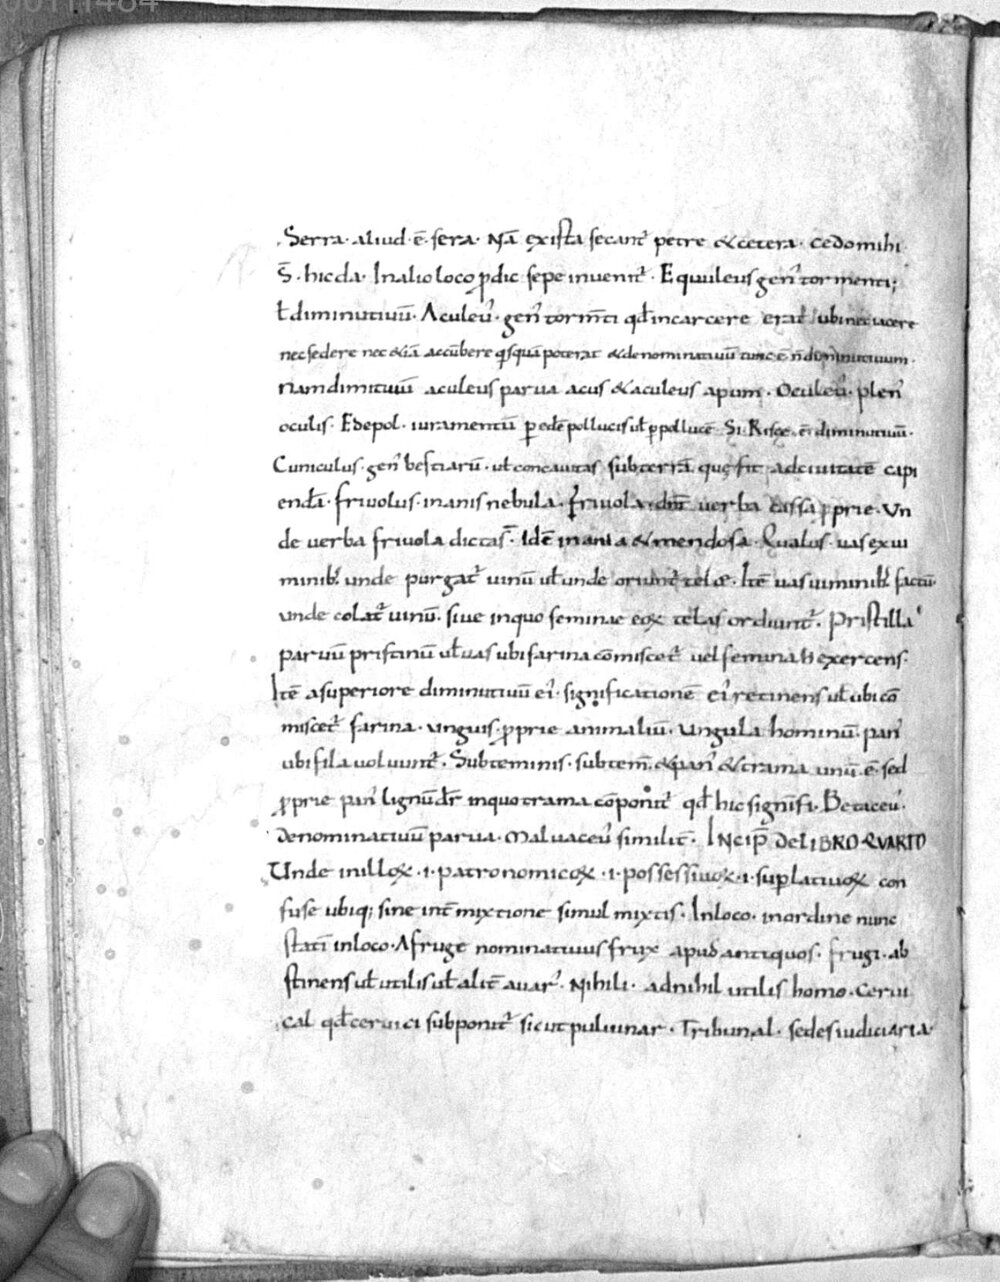 00111484
Serra· aliud·ē·sera· Nā ex ista secant᷑ petre &cetera· cedo mihi
s̄· hic da· Inalio loco p̄dic̄ sepe inuenit᷑· Equuleus gen᷒ tormenti;
ł diminutiuū· Aculeu᷒· gen᷒ torm̄ti qd̄ incarcere erat ubi nec iacere
nec sedere nec &iā accūbere q̇squā poterat &denominatiuū tunc ē n̄ diminutiuum·
nam dimituiū aculeus parua acus &aculeus apum· Oculeu᷒· plen᷒
oculis· Edepol· iuramentū p edē pollucis uł p pollucē Si· ē diminutiuū·
Cuniculus· gen᷒ bestiarū· uł concauitas subterrā quę fit adciuitatē capi
endā· friuolus· inanis nebula· friuola dn̄r uerba cassa p̄prie· Un
de uerba friuola dictas̄· Idē inania &mendosa· Qualus· uas exui
minib; unde purgat᷑ uinū uł unde oriunt᷑ telæ· Itē uas uiminib; factū
unde colat᷑ uinū· siue inquo feminae eoꝝ telas ordiunt᷑· Pristilla
paruū pristinū uł uas ubi farina cōmiscet᷑ uel femina h̄ exercens·
Itē asuperiore diminutiuū ei᷒· significationē ei᷒ retinens uł ubi cō
miscet᷑ farina· unguis· p̄prie animaliū· ungula hominū· pan᷒
ubi fila uoluunt᷑· Subteminis· subtem̄· &pan᷒ &trama unū·ē· sed
p̄prie pan᷒ lignū dr̄ inquo trama cōponit᷑ qd̄ hic signifi· Betaceu᷒·
denominatiuū parua· Maluaceu᷒ similit̄· INCIP̄ DE LIBRO QVARTO
Unde inilloꝝ·i·patronomicoꝝ·i·possessiuoꝝ·i·suplatiuoꝝ con
fuse ubiq; sine int̄mixtione simul mixtis· Inloco· inordine nunc
statī inloco· Afruge nominatiuus frux apud antiquos· frugi· ab
stinens uł utilis uł alit̄ auar᷒· Nihili· adnihil utilis homo· Cerui
cal qd̄ ceruici subponit᷑ sicut puluinar· Tribunal· sedes iudiciaria·